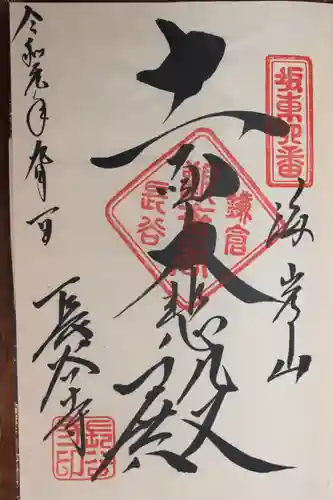 坂東四番
海光山
十一面大悲殿
鎌倉
観音
長谷
長谷寺
長谷寺印
令和元年九月一日